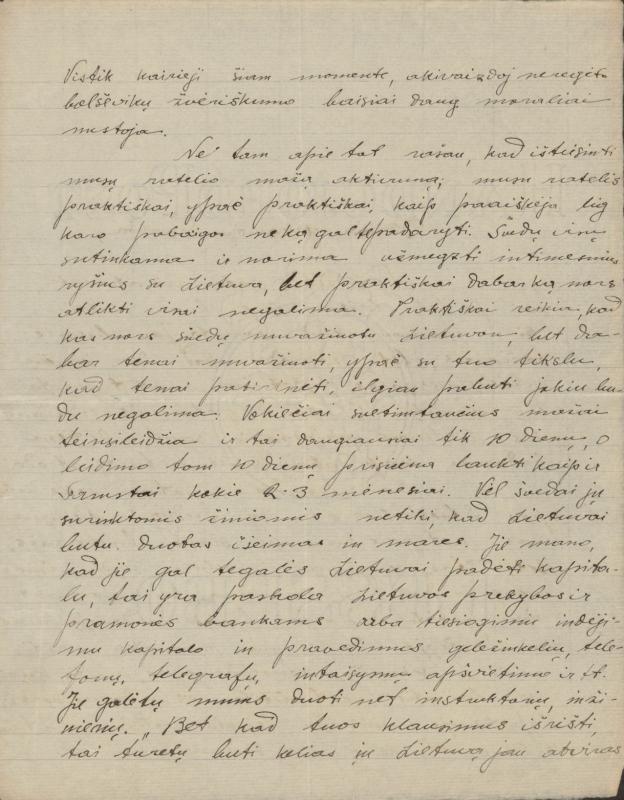 Vistik kairieji šiam momente, akivaizdoj neregėto
bolševikų žvėriškumo baisiai daug moraliai
nustoja.
Ne tam apie tat rašau, kad išteisinti
musų ratelio mažą aktivumą; musų ratelis
praktiškai, ypač praktiškai, kaip paaiškėja lig
karo pabaigos neką gal tepadaryti. Švedų visų
sutinkama ir norima užmegzti intimesnius
ryšius su Lietuva, bet praktiškai dabar ką nors
atlikti visai negalima. Praktiškai reikia, kad
kas nors švedų nuvažiuotų Lietuvon, bet da-
bar tenai nuvažiuoti, ypač su tuo tikslu,
kad tenai patirinėti, ilgiau pabuti jokiu bu-
du negalima. Vokiečiai svetimtaučius mažai
teinsileidžia ir tai daugiausiai tik 10 dienų, o
leidimo tom 10 dienų prisieina laukti kaip ir
kokie 2-3 mėnesiai. Vėl švedai jų
surinktomis žiniomis netiki, kad Lietuvai
butu duotas išeimas in mares. Jie mano,
kad jie gal tegalės Lietuvai padėti kapita-
lu, tai yra paskola Lietuvos prekybos ir
pramonės bankams arba tiesioginiu indėji-
mu kapitalo in pravedimus geležinkelių, tele-
fonų, telegrafų, intaisymų apšvietimo ir tt.
Jie galėtų mums duoti net instruktorių, inži-
nierių. Bet kad tuos klausimus išrišti,
tai turėtų buti kelias in Lietuvą jau atviras